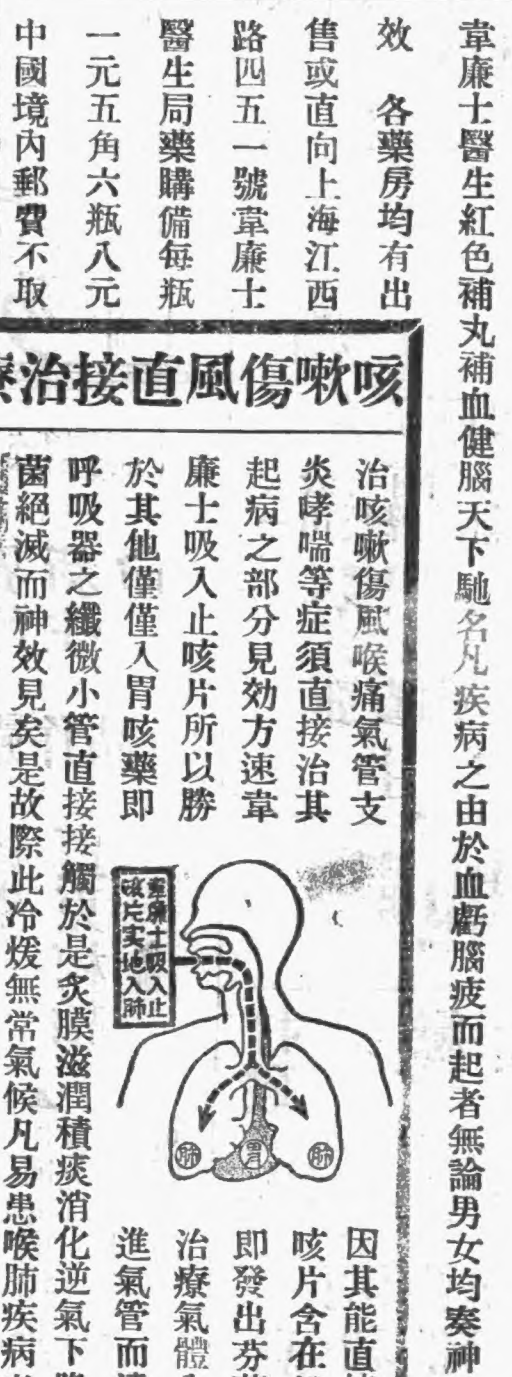 韋廉士醫生紅色補丸補血健腦天下馳名凡疾病之由於血虧腦疲而起者無論男女均奏神
效　各藥房均有出
售或直向上海江西
路四五一號韋廉士
醫生局藥購備每瓶
一元五角六瓶八元
中國境內郵費不取
咳嗽傷風直接治療
治咳嗽傷風喉痛氣管支
炎哮喘等症須直接治其
起病之部分見効方速韋
廉士吸入止咳片所以勝
於其他僅僅入胃咳藥即
因其能直
咳片含在
即發出芬
治療氣體
進氣管而
呼吸器之纖微小管直接接觸於是炙膜滋潤積痰消化逆氣下
菌絕滅而神效見矣是故際此冷煖無常氣候凡易患喉肺疾病
韋廉士吸入止
咳片实地入肺
肺
胃
肺